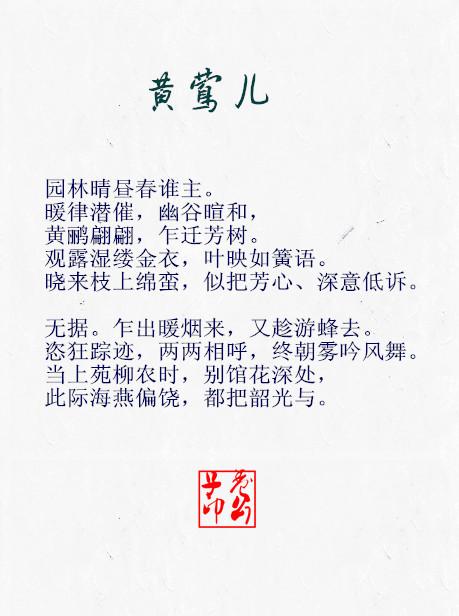 黄莺儿
园林晴昼春谁主。
暖律潜催，幽谷暄和，
黄鹂翩翩，乍迁芳树。
观露湿缕金衣，叶映如簧语。
晓来枝上绵蛮，似把芳心、深意低诉。
无据。乍出暖烟来，又趁游蜂去。
恣狂踪迹，两两相呼，终朝雾吟风舞。
当上苑柳农时，别馆花深处，
此际海燕偏饶，都把韶光与。